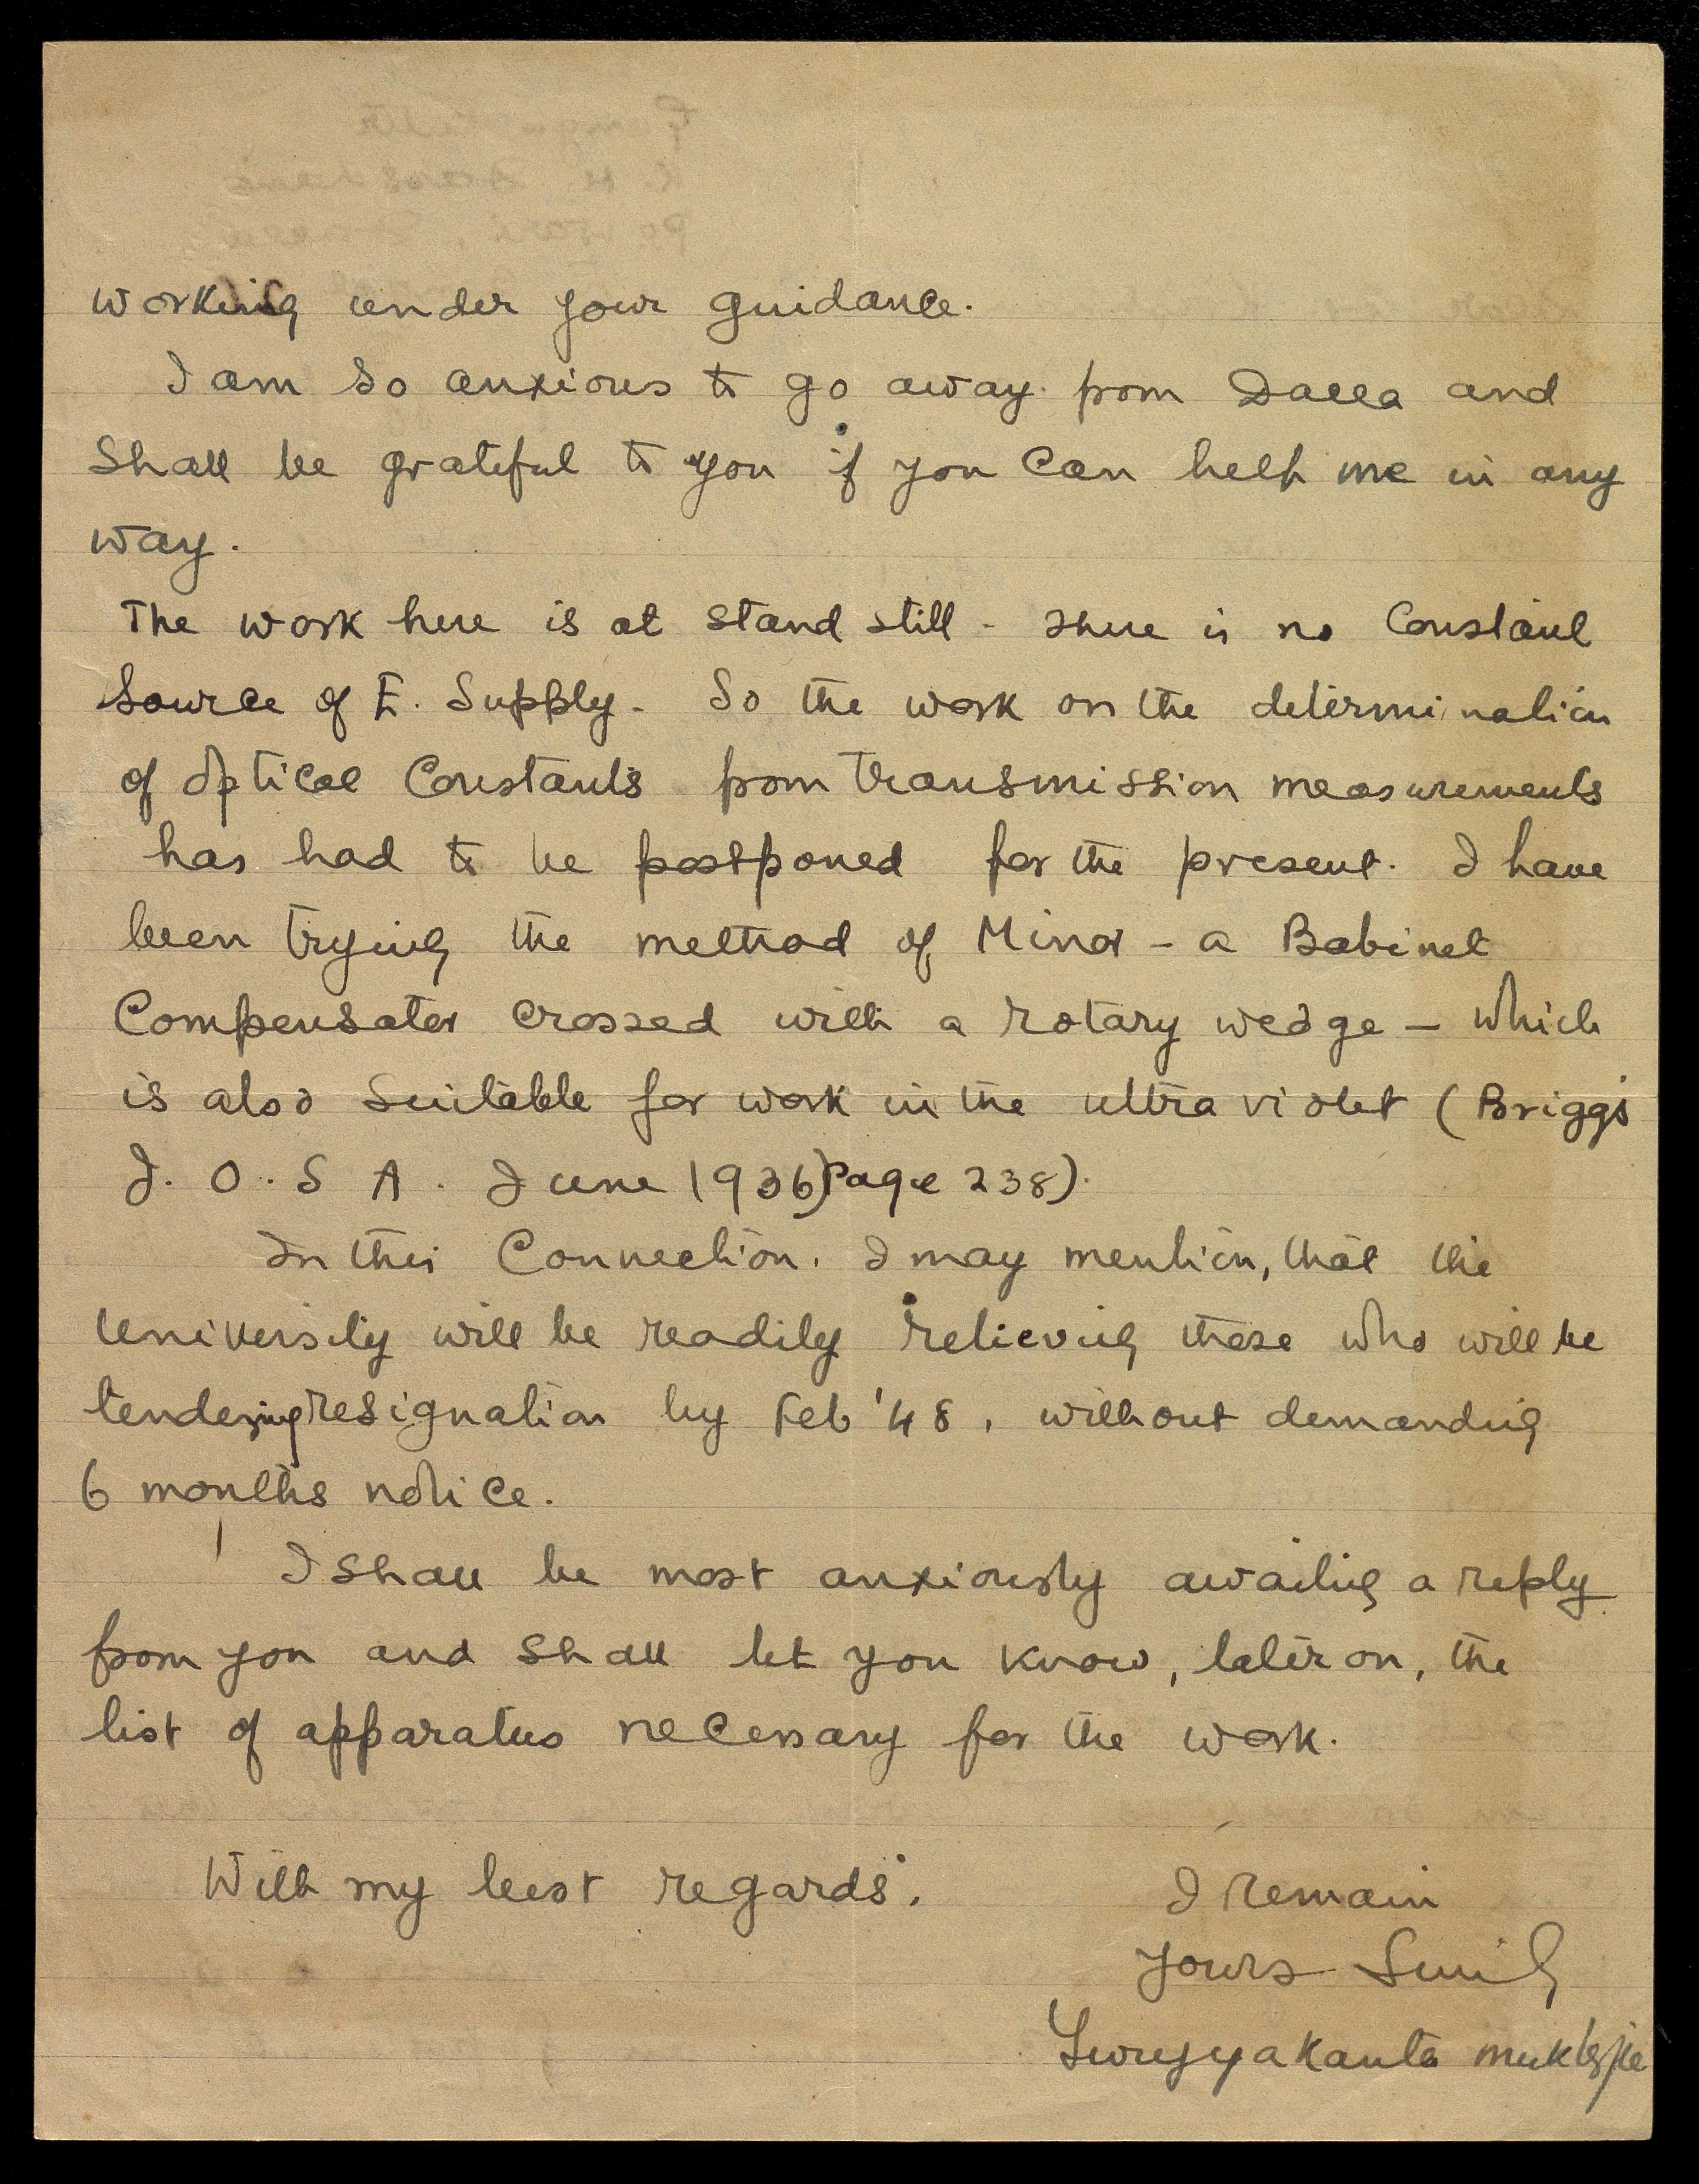 working under your guidance.
I am so anxious to go away from Dacca and
Shall be grateful to you if you can help me in any
way.
The work here is at stand still - There is no Constant
Source of E. Supply. So the work on the determination
of optical Constants from transmission measurements
has had to be postponed for the present. I have
been trying the method of Minor - a Babinet
Compensator crossed with a rotary wedge - which
is also Suitable for work in the ultra violet (Briggs
J. O. S A. June 1936) Page 238).
In this Connection. I may mention, that the
University will be readily relieving those who will be
tendering resignation by Feb '48, without demanding
6 months notice.
I Shall be most anxiously awaiting a reply
from you and Shall let you know, later on, the
list of apparatus necessary for the work.
With my best regards.
I remain
Yours
Suryyakanta mukherjee